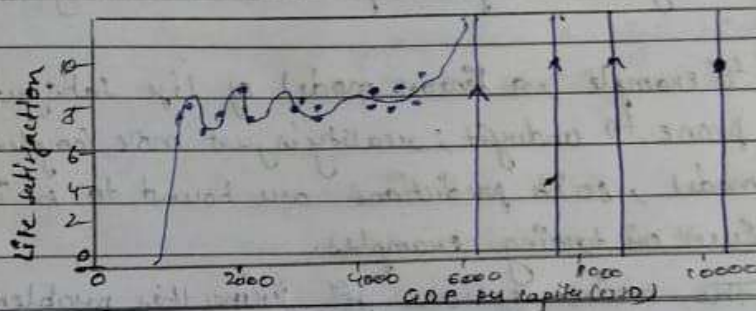 Life satisfaction
10
8
6
4
2
0
0 2000 4000 6000 8000 10000
GDP per capita (USD)